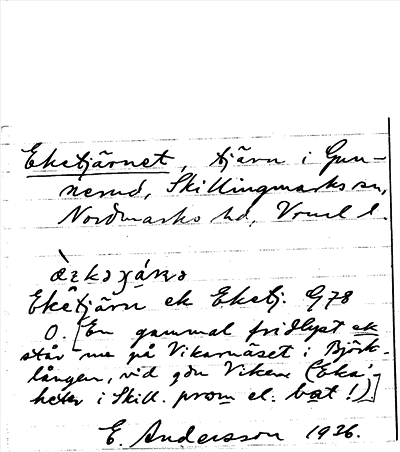 Eketjärnet, tjärn i Gun-
nerud, Skillingmarks sn,
Nordmarks hd, Vrml l.
Eketjärn ek Eketj. G78
O. [En gammal fridlyst ek
står nu på Vikarnäset i Björk-
lången, vid gdn Viken (Eka'
heter i Skill. prom el. bat!).]
E. Andersson 1936.